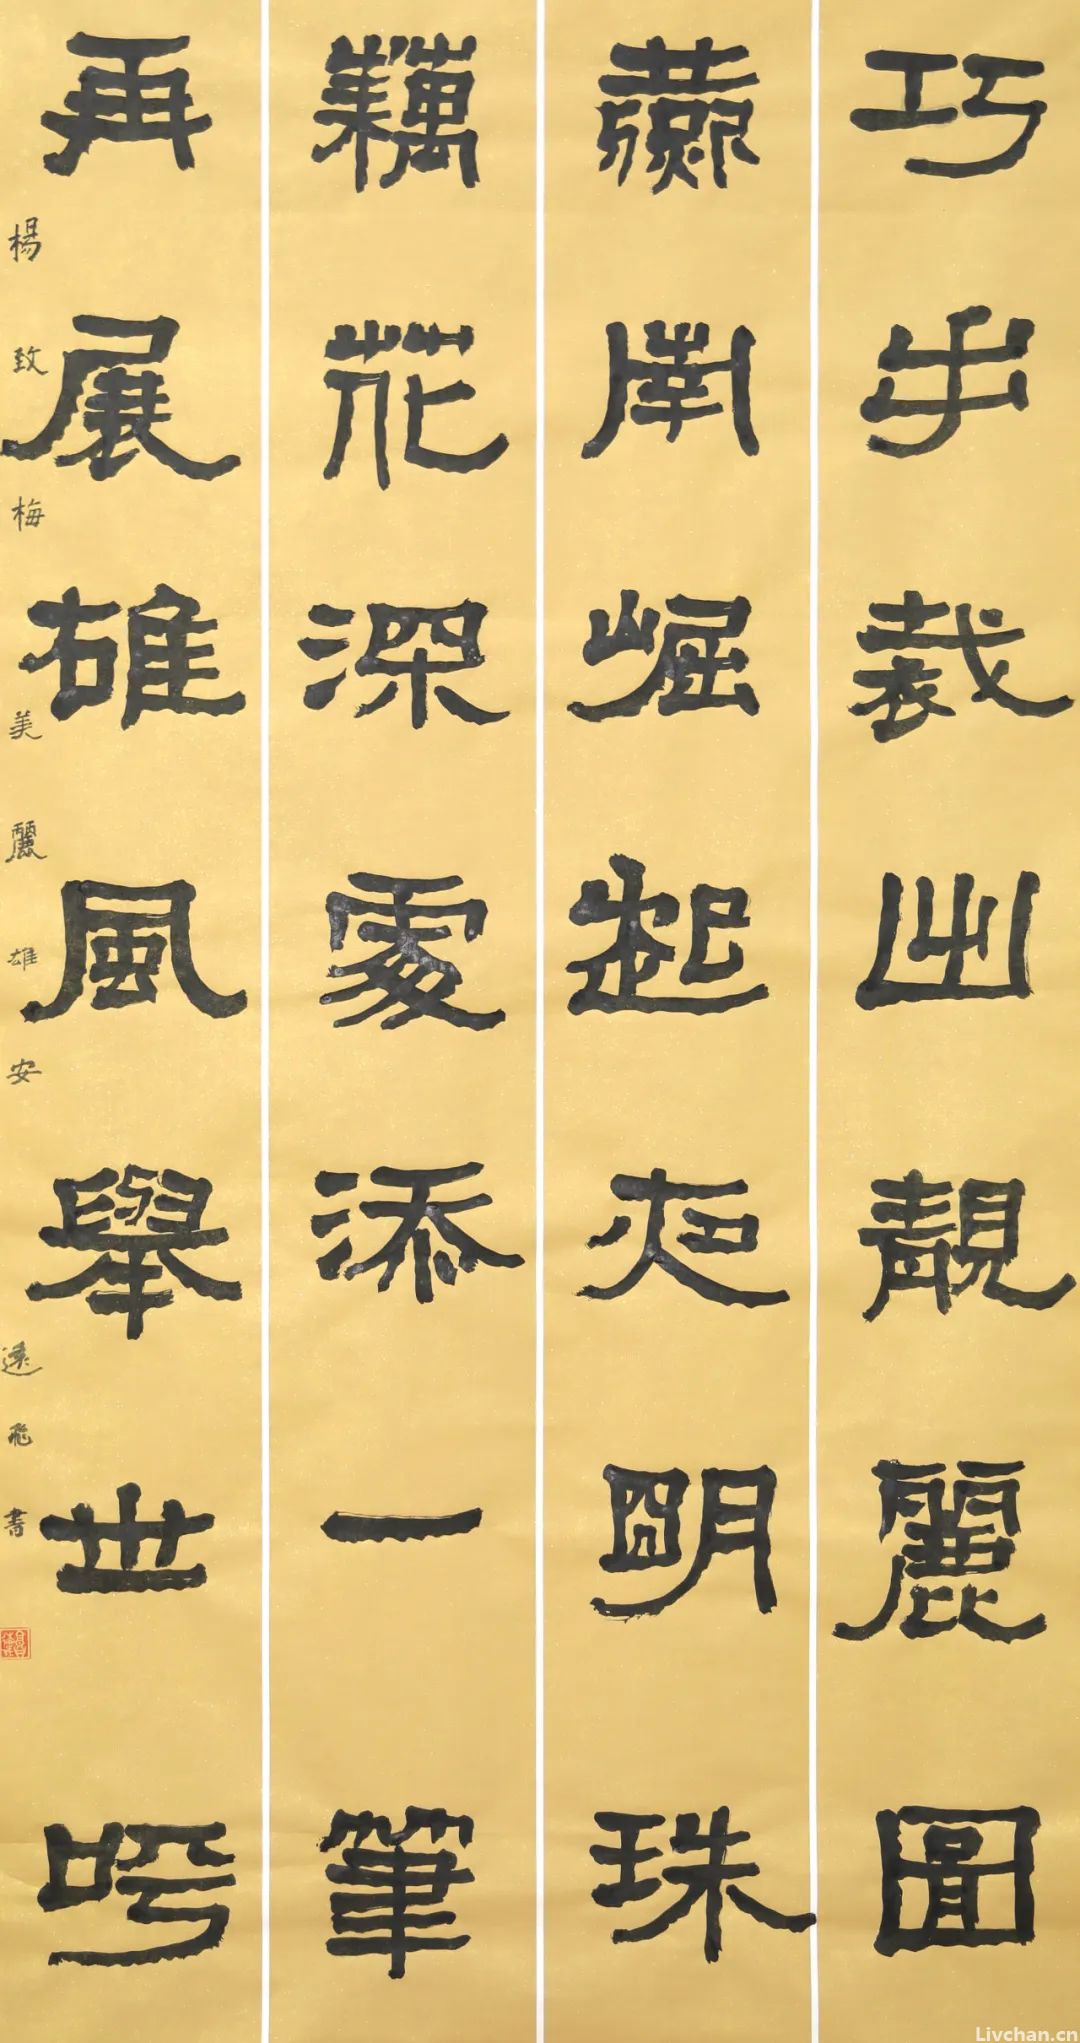 巧手裁出靚麗圖
燕南崛起夜明珠
藕花深處添一筆
再展雄風舉世呺
楊致梅美麗雄安遠飛書
Livchan.cn